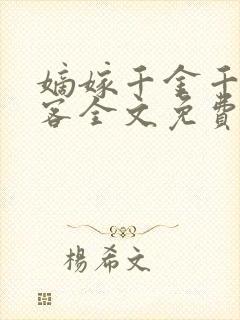 嫡嫁千金千
客全文免費
楊希文